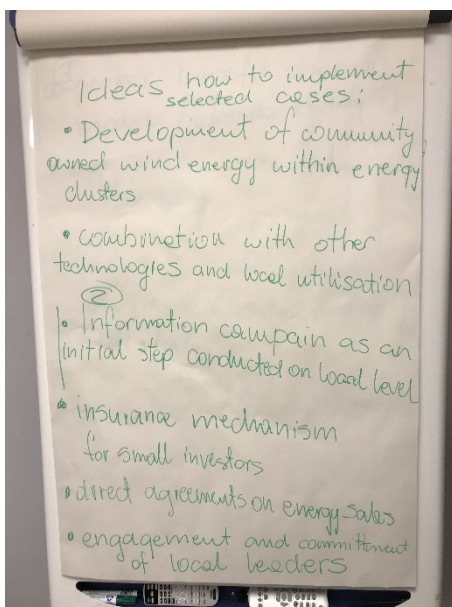 Ideas how to implement
selected cases:
• Development of community
owned wind energy within energy
clusters
• combination with other
technologies and local utilisation
2
• Information campain as an
initial step conducted on local level
• insurance mechanism
for small investors
• direct agreements on energy sales
• engagement and committment
of local leaders